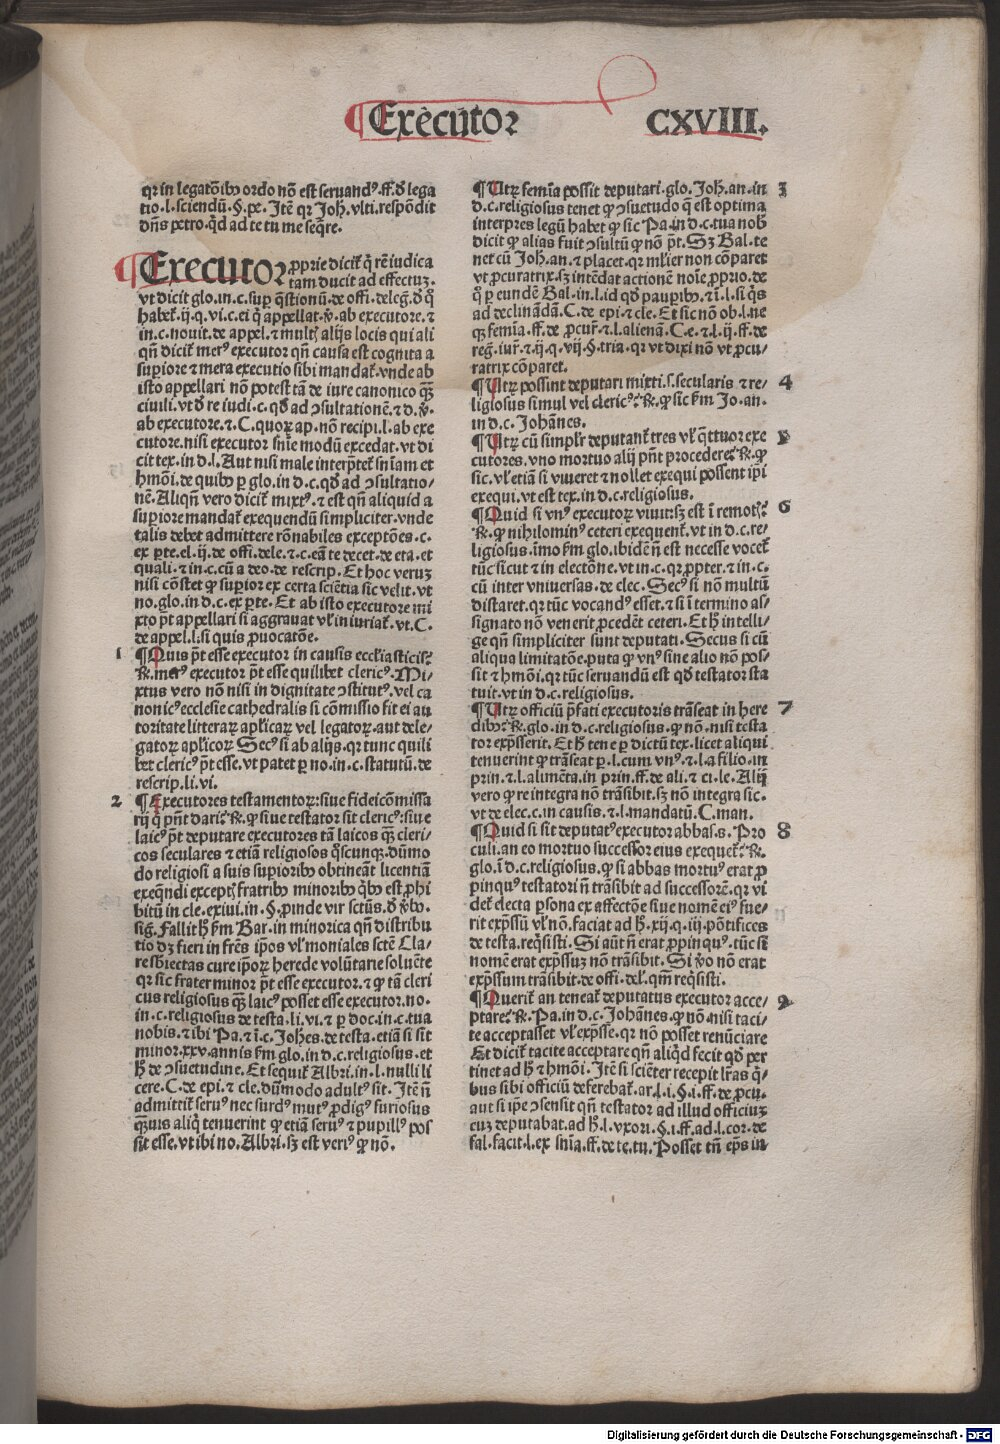 ¶Executor CXVIII.
qr in legatōibꝰ ordo nō est seruandꝰ.ff.d̄ lega
tio.l.sciendū.§.pe. Itē qr Joh̄.vlti.respōdit
dn̄s petro.qd̄ ad te tu me seq̄re.
¶Executor ꝓprie dicit̄ q̄ rē iudica
tam ducit ad effectuꝫ.
vt dicit glo.in.c.suꝑ q̄stionū.de offi.deleḡ.d̄ q̊
habet̄.ij.q.vi.c.ei q̊ appellat.v̄.ab executore.⁊
in.c.nouit.de appel.⁊ multꝭ alijs locis qui ali
qn̄ dicit̄ merꝰ executor qn̄ causa est cognita a
suꝑiore ⁊ mera executio sibi mandat̄.vnde ab
isto appellari nō potest tā de iure canonico qꝫ̄
ciuili.vt d̄ re iudi.c.qd̄ ad ↄsultationē.⁊ d.v̄.
ab executore.⁊.C.quoꝝ ap.nō recipi.l.ab exe
cutore.nisi executor sn̄ie modū excedat.vt di
cit tex.in d.l. Aut nisi male interp̄tet̄ sn̄iam et
hmōi.de quibꝰ ꝑ glo.in d.c.qd̄ ad ↄsultatio/
nē. Aliqn̄ vero dicit̄ mixtꝰ.⁊ est qn̄ aliquid a
suꝑiore mandat̄ exequendū simpliciter.vnde
talis debet admittere rōnabiles exceptōes.c.
ex ꝑte.el.ij.de offi.dele.⁊ c.eā te decet.de eta.et
quali.⁊ in.c.cū a deo.de rescrip. Et hoc veruꝫ
nisi cōstet ꝙ suꝑior ex certa sciētia sic velit.vt
no.glo.in d.c.ex ꝑte. Et ab isto executore mi
xto p̄t appellari si aggrauat vl̄ in iuriat̄.vt.C.
de appel.l.si quis ꝓuocatōe.
1 ¶Quis p̄t esse executor in causis eccl̄iasticis?
R̄.merꝰ executor p̄t esse quilibet clericꝰ. Mi/
xtus vero nō nisi in dignitate ↄstitutꝰ.vel ca
nonicꝰ ecclesie cathedralis si cōmissio fit ei au
toritate litteraꝝ apl̄icaꝝ vel legatoꝝ.aut dele/
gatoꝝ apl̄icoꝝ Secꝰ si ab alijs.qr tunc quili
bet clericꝰ p̄t esse.vt patet ꝑ no.in.c.statutū.de
rescrip.li.vi.
2 ¶Executores testamentoꝝ:siue fideicōmissa
rij q̊ pn̄t dari? R̄.ꝙ siue testator sit clericꝰ:siue
laicꝰ p̄t deputare executores tā laicos qꝫ̄ cleri/
cos seculares ⁊ etiā religiosos q̊scunqꝫ.dūmo
do religiosi a suis suꝑioribꝰ obtineāt licentiā
exeq̄ndi exceptꝭ fratribꝰ minoribꝰ q̊bꝰ est ꝓhi
bitū in cle.exiui.in.§.ꝓinde vir sctūs.d̄ v̄bꝰ.
sig. Fallit h̄ ẜm Bar.in minorica qn̄ distribu
tio dꝫ fieri in frēs ip̄os vl̄ moniales sctē Cla/
re sb̄iectas cure ip̄oꝝ herede volūtarie soluēte
qr sic frater minor p̄t esse executor.⁊ ꝙ tā cleri
cus religiosus qꝫ̄ laicꝰ posset esse executor.no.
in.c.religiosus de testa.li.vi.⁊ ꝑ doc.in c.tua
nobis.⁊ ibi Pa.⁊ ī.c.Joh̄es.de testa.etiā si sit
minor.xxv.annis ẜm glo.in d.c.religiosus.et
h̄ de ↄsuetudine. Et sequit̄ Albri.in l.nulli li
cere.C.de epi.⁊ cle.dūmodo adultꝰ sit. Itē n̄
admittit̄ seruꝰ nec surdꝰ mutꝰ ꝓdigꝰ furiosus
qꝫ̄uis aliq̄ tenuerint ꝙ etiā seruꝰ ⁊ pupillꝰ pos
sit esse.vt ibi no. Albri.sꝫ est veriꝰ ꝙ nō.
¶Utꝝ femīa possit deputari.glo. Joh̄.an.in 3
d.c.religiosus tenet ꝙ ↄsuetudo q̄ est optima
interpres legū habet ꝙ sic Pa.in d.c.tua nob̄
dicit ꝙ alias fuit ↄsultū ꝙ nō p̄t. Sꝫ Bal.te
net cū Joh̄.an.⁊ placet.qr mlier non cōparet
vt ꝓcuratrix.sꝫ intēdat actionē noīe ꝓprio.de
q̊ ꝑ eundē Bal.in l.id qd̄ pauꝑibꝰ.⁊ ī.l.si q̊s
ad declinādā.C.de epi.⁊ cle. Et sic nō ob.l.ne
qꝫ femīa.ff.de ꝓcur̄.⁊ l.alienā.C.e.⁊ l.ij.ff.de
reḡ.iur̄.⁊ ij.q.vij.§.tria.qr vt dixi nō vt ꝓcu/
ratrix cōparet.
¶Utꝝ possint deputari mixti.s.secularis ⁊ re/ 4
ligiosus simul vel clericꝰ? R̄.ꝙ sic ẜm Jo.an.
in d.c. Johānes.
¶Utꝝ cū simplr̄ deputant̄ tres vl̄ q̄ttuor exe 5
cutores.vno mortuo alij pn̄t procedere? R̄.ꝙ
sic.vl̄ etiā si viueret ⁊ nollet exequi possent ip̄i
exequi.vt est tex.in d.c.religiosus.
¶Quid si vnꝰ executoꝝ viuit:sꝫ est ī remotꝭ? 6
R̄.ꝙ nihilominꝰ ceteri exequent̄.vt in d.c.re/
ligiosus.īmo ẜm glo.ibidē n̄ est necesse vocet̄
tūc sicut ⁊ in electōne.vt in.c.qr ꝓpter.⁊ in.c.
cū inter vniuersas.de elec. Secꝰ si nō multū
distaret.qr tūc vocandꝰ esset.⁊ si ī termino as/
signato nō venerit ꝓcedēt ceteri. Et h̄ intelli/
ge qn̄ simpliciter sunt deputati. Secus si cū
aliqua limitatōe.puta ꝙ vnꝰ sine alio nō pos/
sit ⁊ hmōi.qr tūc seruandū est qd̄ testator sta
tuit.vt in d.c.religiosus.
¶Utꝝ officiū p̄fati executoris trāseat in here 7
dibꝰ? R̄.glo.in d.c.religiosus.ꝙ nō.nisi testa
tor exp̄sserit. Et h̄ tene ꝑ dictū tex.licet aliqui
tenuerint ꝙ trāseat ꝑ l.cum vnꝰ.⁊ l.a filio.in
prin.⁊ l.alimēta.in prin.ff.de ali.⁊ ci.le. Alij
vero ꝙ re integra nō trāsibit.sꝫ nō integra sic.
vt de elec.c.in causis.⁊ l.mandatū.C.man.
¶Quid si sit deputatꝰ executor abbas.s. Pro 8
culi.an eo mortuo successor eius exequet̄? R̄.
glo.ī d.c.religiosus.ꝙ si abbas mortuꝰ erat ꝓ
pinquꝰ testatori n̄ trāsibit ad successorē.qr vi
det̄ electa ꝑsona ex affectōe siue nomē eiꝰ fue/
rit exp̄ssū vl̄ nō.faciat ad h̄.xij.q.iij.pōntifices
de testa.req̄sisti. Si aūt n̄ erat ꝓpinquꝰ.tūc si
nomē erat exp̄ssuꝫ nō trāsibit. Si v̄o nō erat
exp̄ssum trāsibit.de offi.del̄.qm̄ req̄sisti.
¶Querit̄ an teneat̄ deputatus executor acce/ 9
ptare? R̄. Pa.in d.c. Johānes.ꝙ nō.nisi taci/
te acceptasset vl̄ exp̄sse.qr nō posset renūciare
Et dicit̄ tacite acceptare qn̄ aliq̊d fecit qd̄ per
tinet ad h̄ ⁊ hmōi. Itē si sciēter recepit lr̄as q̊/
bus sibi officiū deferebat̄.ar.l.i.§.i.ff.de ꝓcu.
aut si ip̄e ↄsensit qn̄ testator ad illud officiuꝫ
eūꝫ deputabat.ad h̄.l.vxori.§.i.ff.ad.l.cor.de
fal.facit.l.ex sn̄ia.ff.de te.tu. Posset tn̄ ep̄s in/
Digitalisierung gefördert durch die Deutsche Forschungsgemeinschaft - DFG